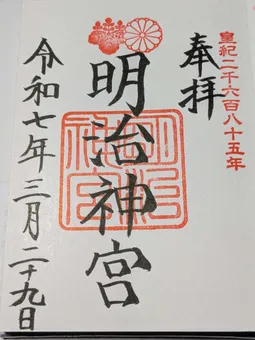 皇紀二千六百八十五年
奉拝
明治神宮
令和七年三月二十九日